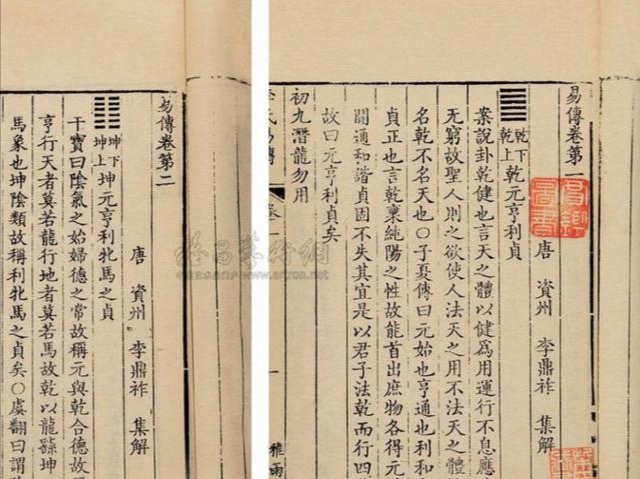 易傳卷第一
唐 資州 李鼎祚 集解
乾下
乾上
乾元亨利貞
案說卦乾健也言天之體以健爲用運行不息應
无窮故聖人則之欲使人法天之用不法天之體
名乾不名天也○子夏傳曰元始也亨通也利和
貞正也言乾稟純陽之性故能首出庶物各得元
開通和諧貞固不失其宜是以君子法乾而行四
故曰元亨利貞矣
初九潛龍勿用
氏易傳
卷一
一
雅雨
圖書
易傳卷第二
唐 資州 李鼎祚 集解
坤下
坤上
坤元亨利牝馬之貞
干寶曰陰氣之始婦德之常故稱元與乾合德故
亨行天者莫若龍行地者莫若馬故乾以龍繇坤
馬象也坤陰類故稱利牝馬之貞矣○虞翻曰謂
雅昌藝術網
www.artron.net